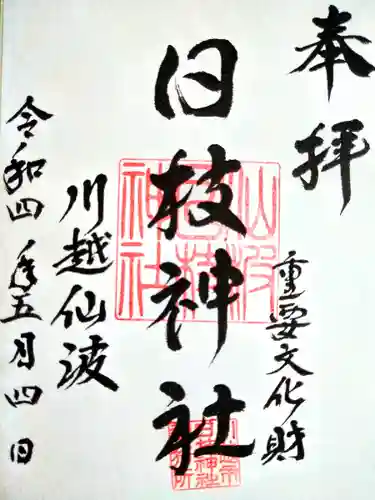 奉拝
重要文化財
日枝神社
川越仙波
令和四年五月四日
仙波
日枝
神社